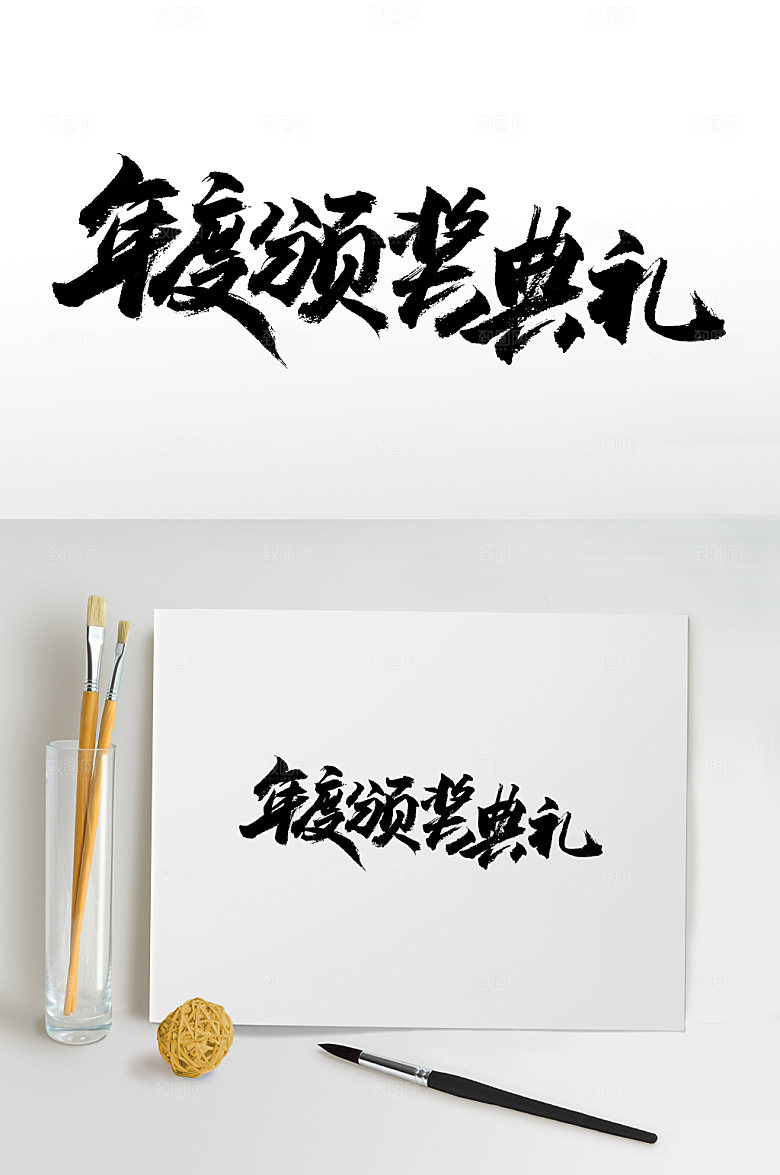 年度颁奖典礼
年度颁奖典礼